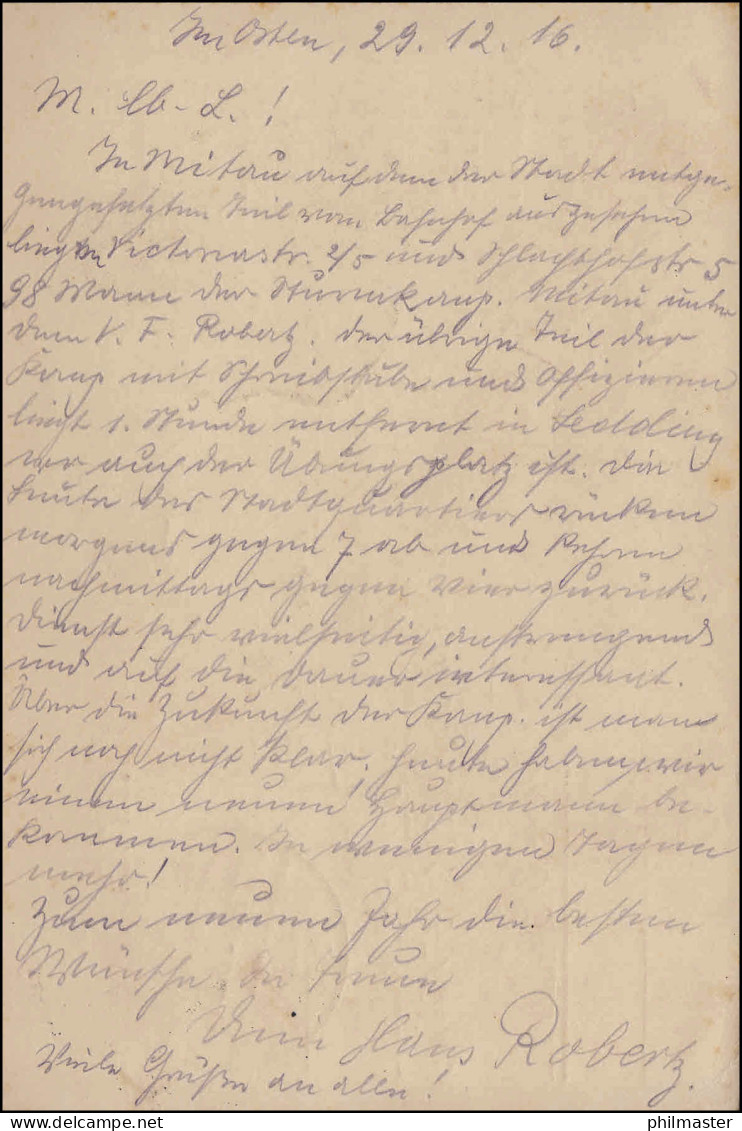 Im Osten, 29. 12. 16.
M. lb. L.!
In Mitau auf dem der Stadt entge-
gengesetzten Teil vom Bahnhof aus gesehen
liegen Victoriastr. 2/5 und Schlachthofstr 5
98 Mann der Sturmkomp. Mitau unter
dem V. F. Robertz. Der übrige Teil der
Komp mit Schreibstube und Offizieren
liegt 1. Stunde entfernt in Sedding
wo auch der Übungsplatz ist. Die
Leute des Stadtquartiers rücken
morgens gegen 7 ab und kehren
nachmittags gegen vier zurück.
Dienst sehr vielseitig, anstrengend
und auf die Dauer interessant.
Über die Zukunft der Komp. ist man
sich noch nicht klar, heute haben wir
einen neuen Hauptmann be-
kommen. In wenigen Tagen
mehr!
Zum neuen Jahr die besten
Wünsche In Treue
Dein Hans Robertz.
Viele Grüße an alle!
philmaster